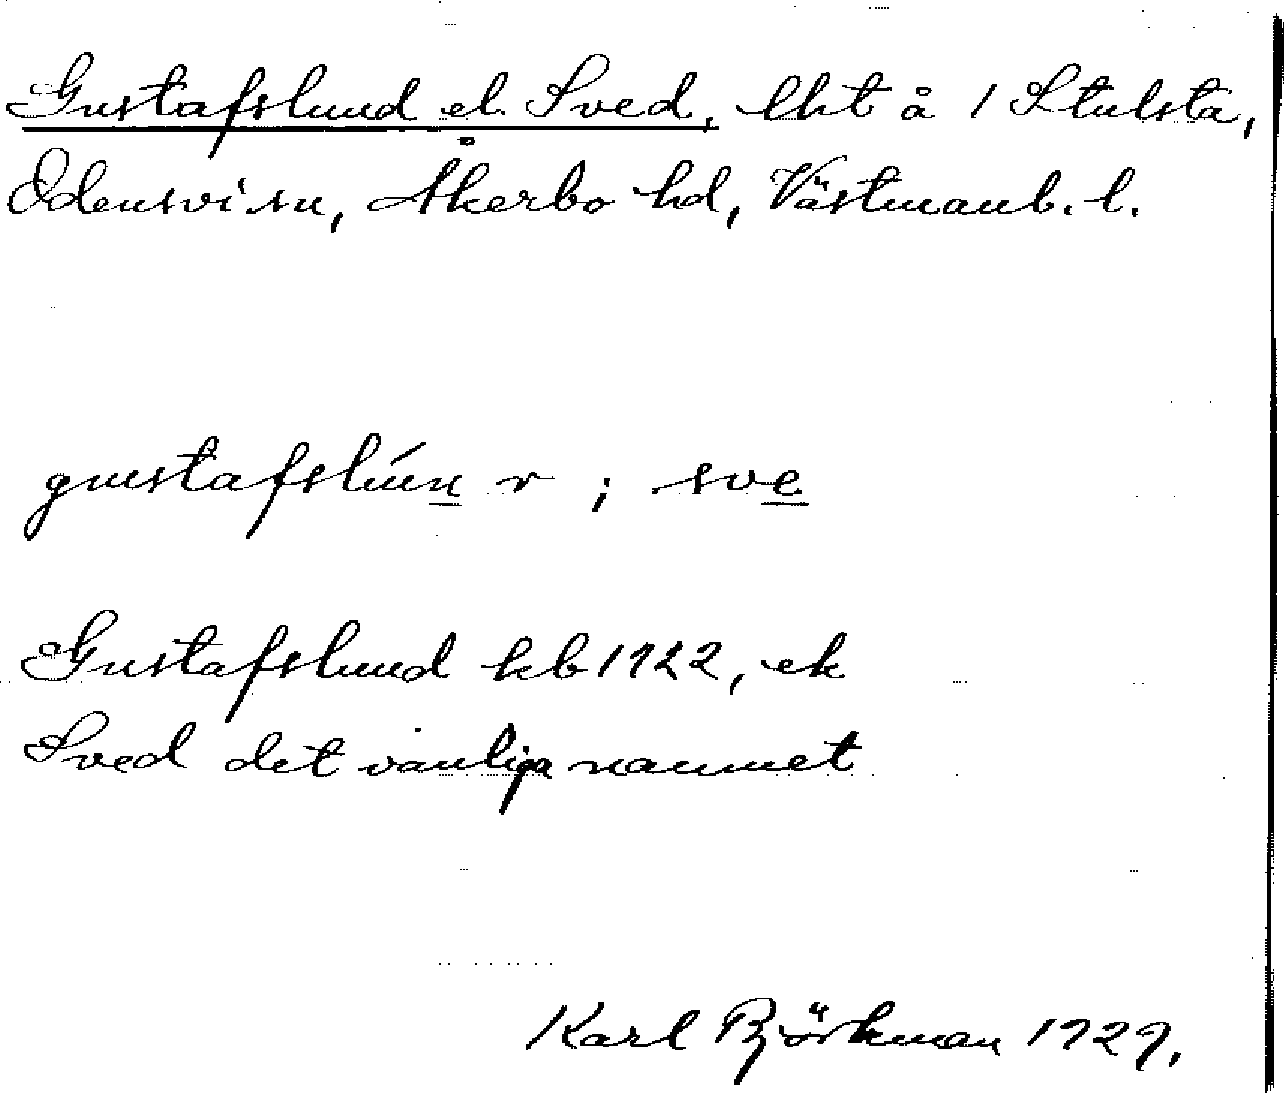 Gustafslund el. Sved, lht å 1 Stalsta,
Odensvi sn, Åkerbo hd, Västmanl. l.
gustafslún r ; sve
Gustafslund kb 1922, ek
Sved det vanliga namnet
Karl Björkman 1929.